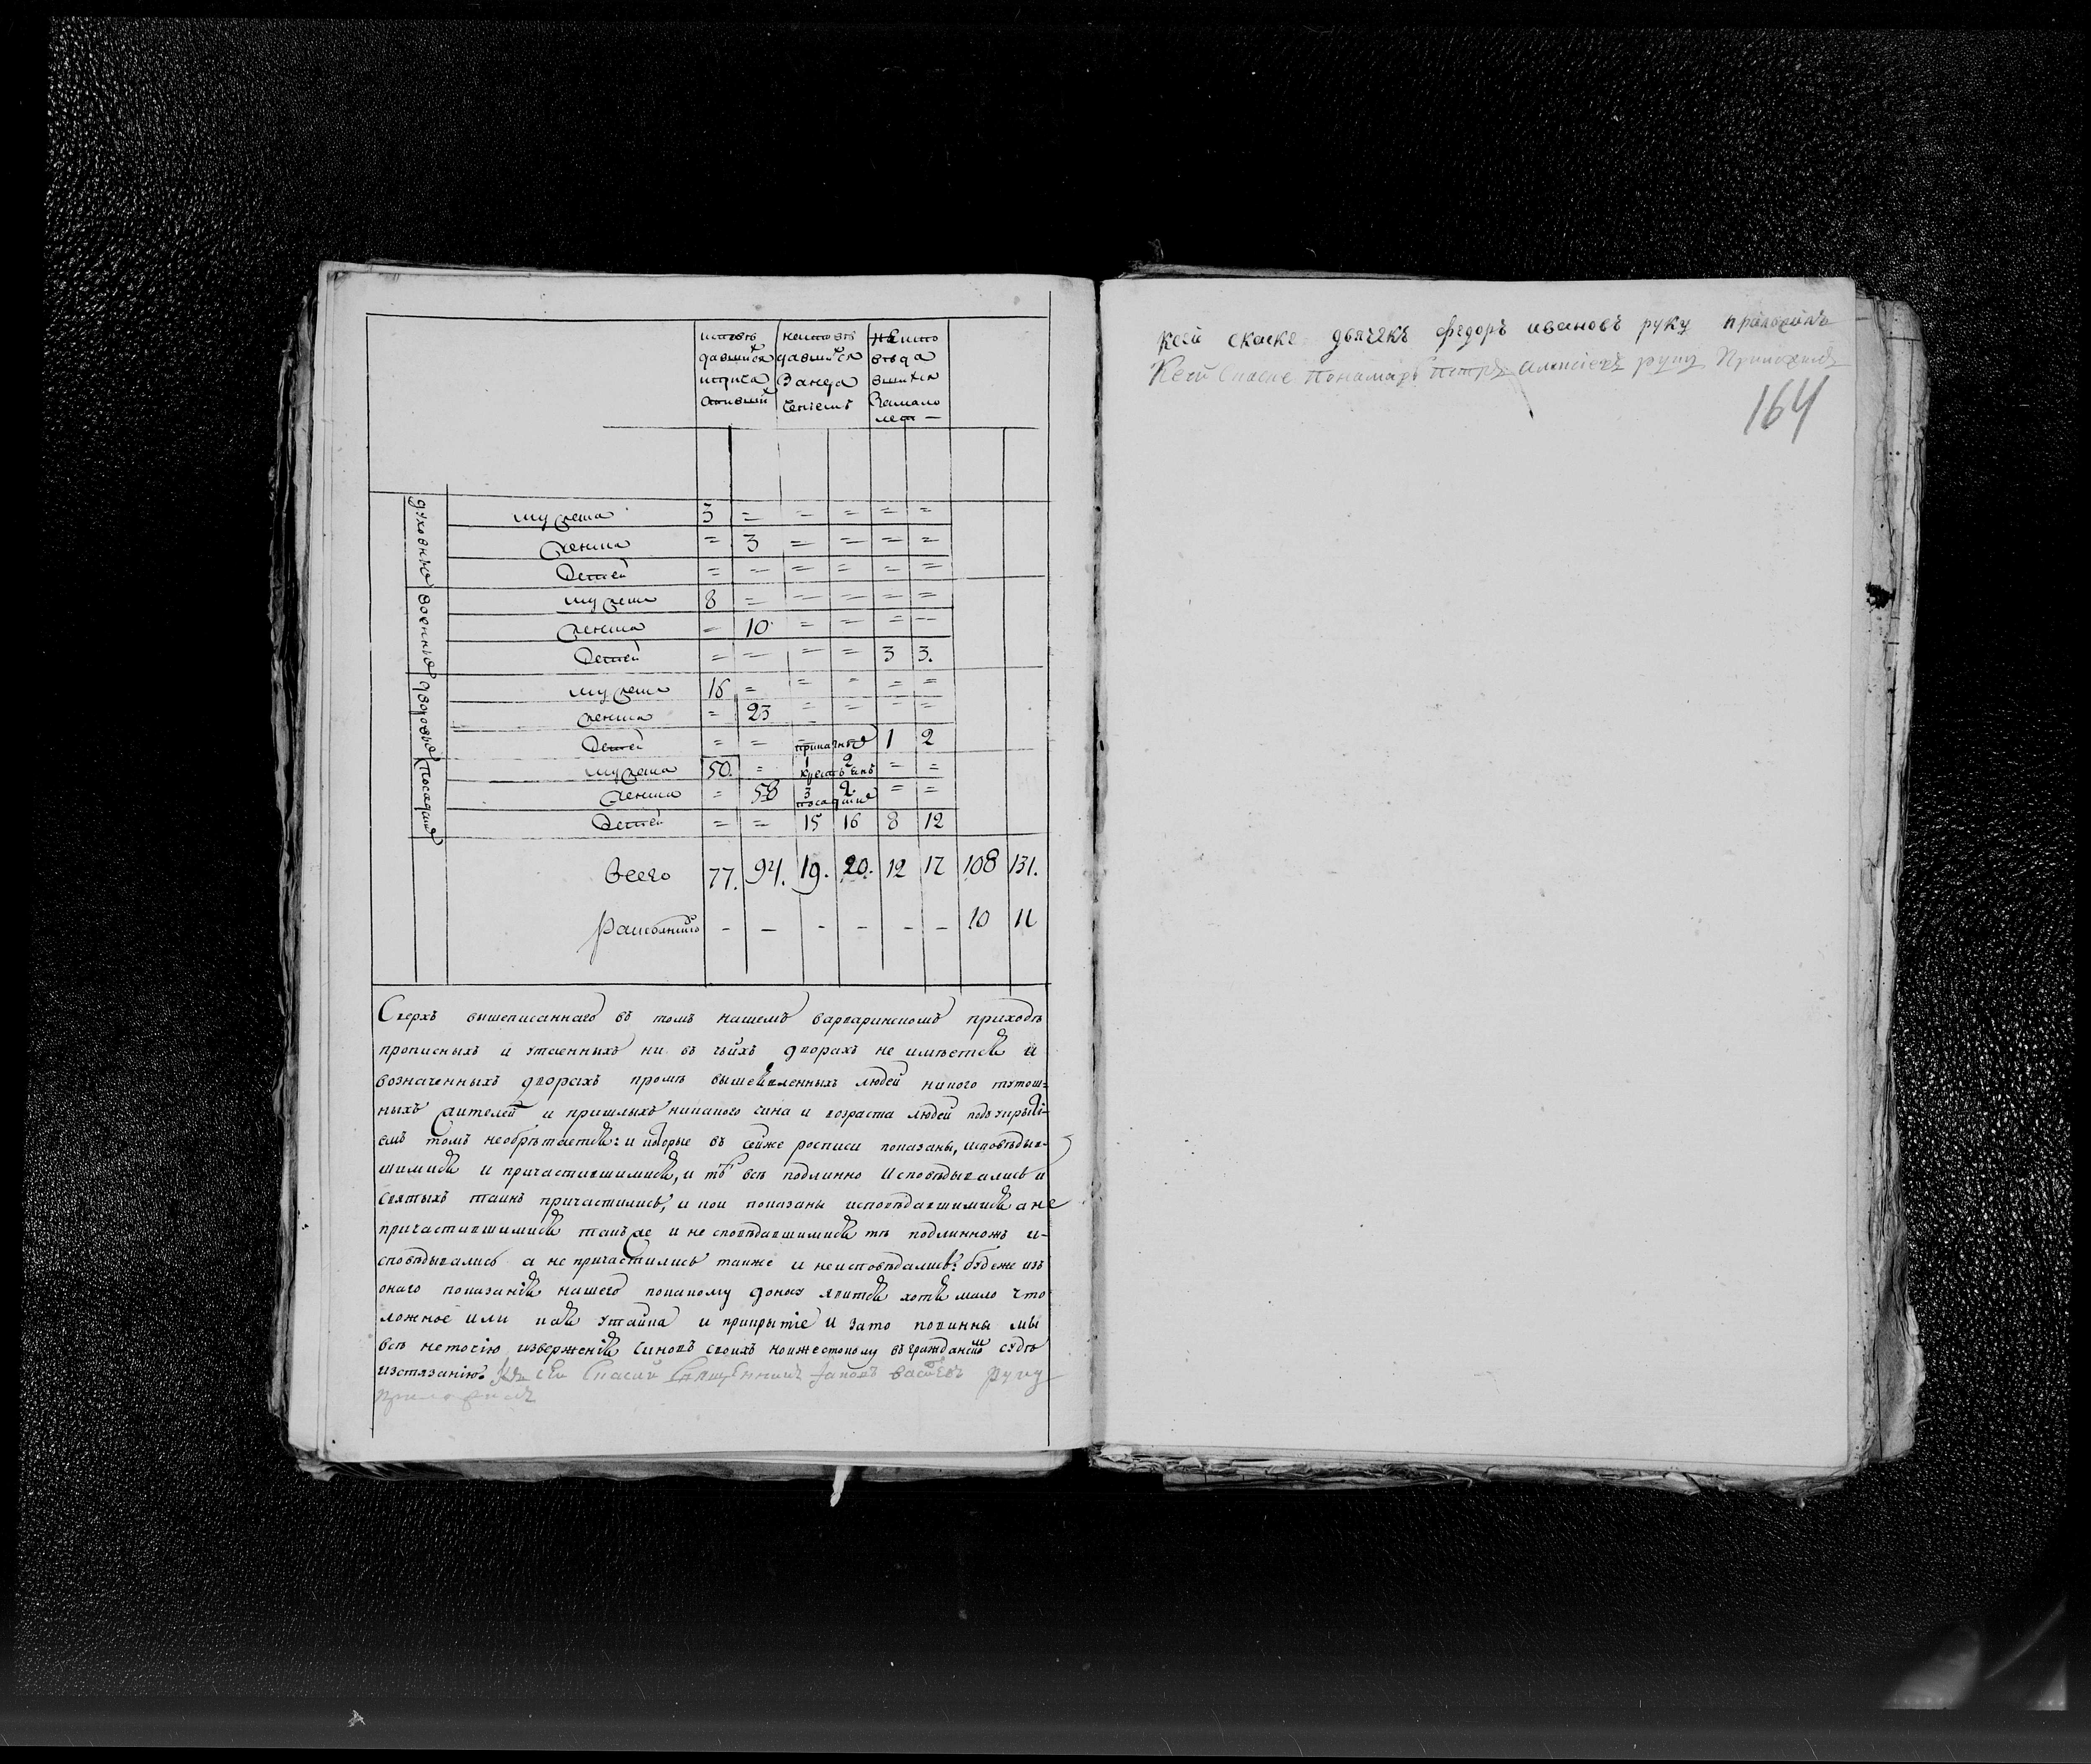 исповѣ неисповѣ не испо
давшися давшися вѣда
и прича за нера вшихся
стившїй ченїемъ за мало
лет —
духовные
мужеска 3 = = = = =
женска = 3 = = = =
детей = = = = = =
военные
мужеска 8 = = = = =
женска = 10 = = = =
детей = = = = 3 3.
дворовые
мужеска 16 = = = = =
женска = 23 = = = =
приказные
детей = = 1 2
посадские
мужеска 50. = 1 2 = =
крестьянъ
женска = 58 3 2 = =
посадские
детей = = 15 16 8 12
всего 77. 94. 19. 20. 12 17 108 131.
- - - - - - 10 11
Сверхъ вышеписаннаго въ томъ нашемъ варваринскомъ приходѣ
прописныхъ и утаенныхъ ни въ чьихъ дворахъ не имѣется и
возначенныхъ дворахъ кромѣ вышеявленныхъ людей никого тутош=
ныхъ жителей и пришлыхъ никакого чина и возраста людей под укрыті-
емъ томъ необрѣтается: и которые въ сейже росписи показаны, исповѣдыв-
шимися и причастившимися, и тѣ всѣ подлинно исповѣдывались и
святыхъ таинъ причастились, и кои показаны исповѣдавшимися а не
причастившимися такъ же и не сповѣдавшимися тѣ подлинножъ и-
сповѣдывались а не причастились также и неисповѣдались: будеже изъ
онаго показанія нашего покакому доносу явится хотя мало что
ложное или кая утайка и прикрытіе и зато повинны мы
всѣ неточію изверженія чиновъ своихъ ноижестокому въ гражданскомъ судѣ
изтязанію.
къ сей скаски священникъ васильевъ руку
приложилъ
Ксей скаске дьячекъ федоръ ивановъ руку приложилъ
Ксей скаске пономарь петръ алексѣевъ руку приложилъ
164